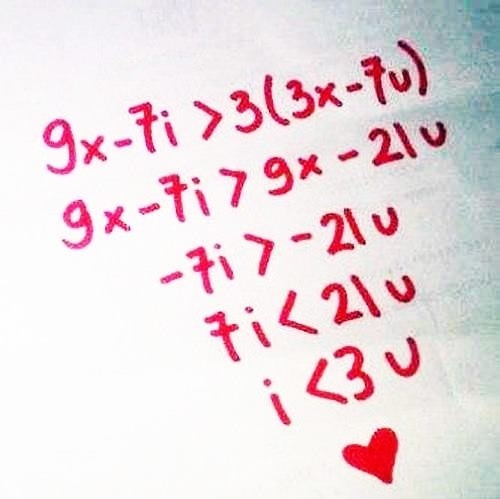 9x-7i >3(3x-7u)
9x-7i > 9x - 21u
-7i > -21u
7i < 21u
i <3 u